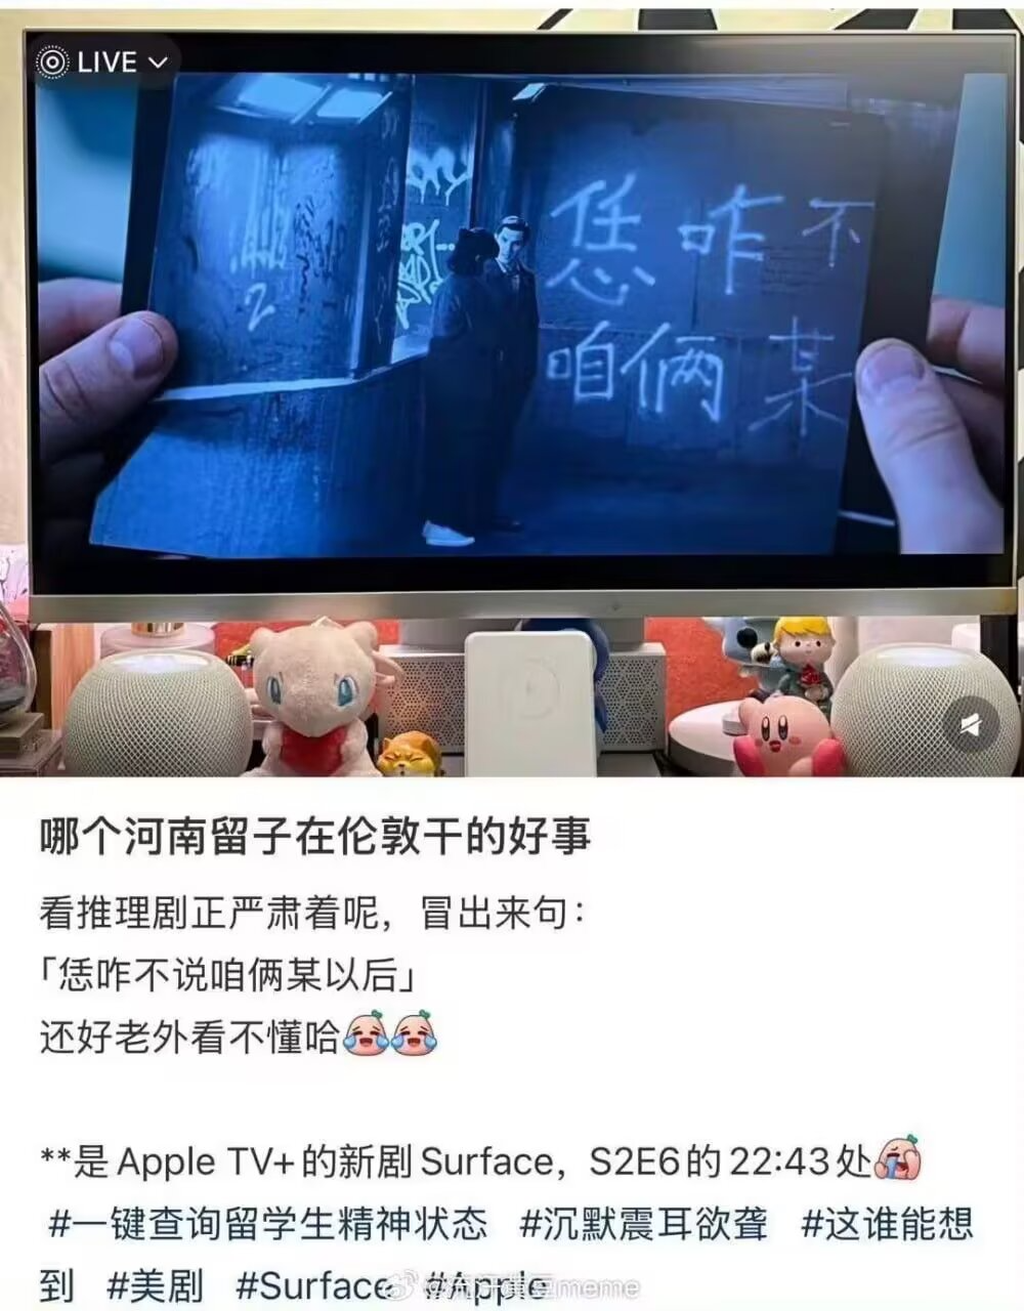 LIVE
恁咋不
咱俩某
2
哪个河南留子在伦敦干的好事
看推理剧正严肃着呢，冒出来句：
「恁咋不说咱俩某以后」
还好老外看不懂哈
**是Apple TV+的新剧Surface，S2E6的22:43处
#一键查询留学生精神状态 #沉默震耳欲聋 #这谁能想
到 #美剧 #Surface #Apple